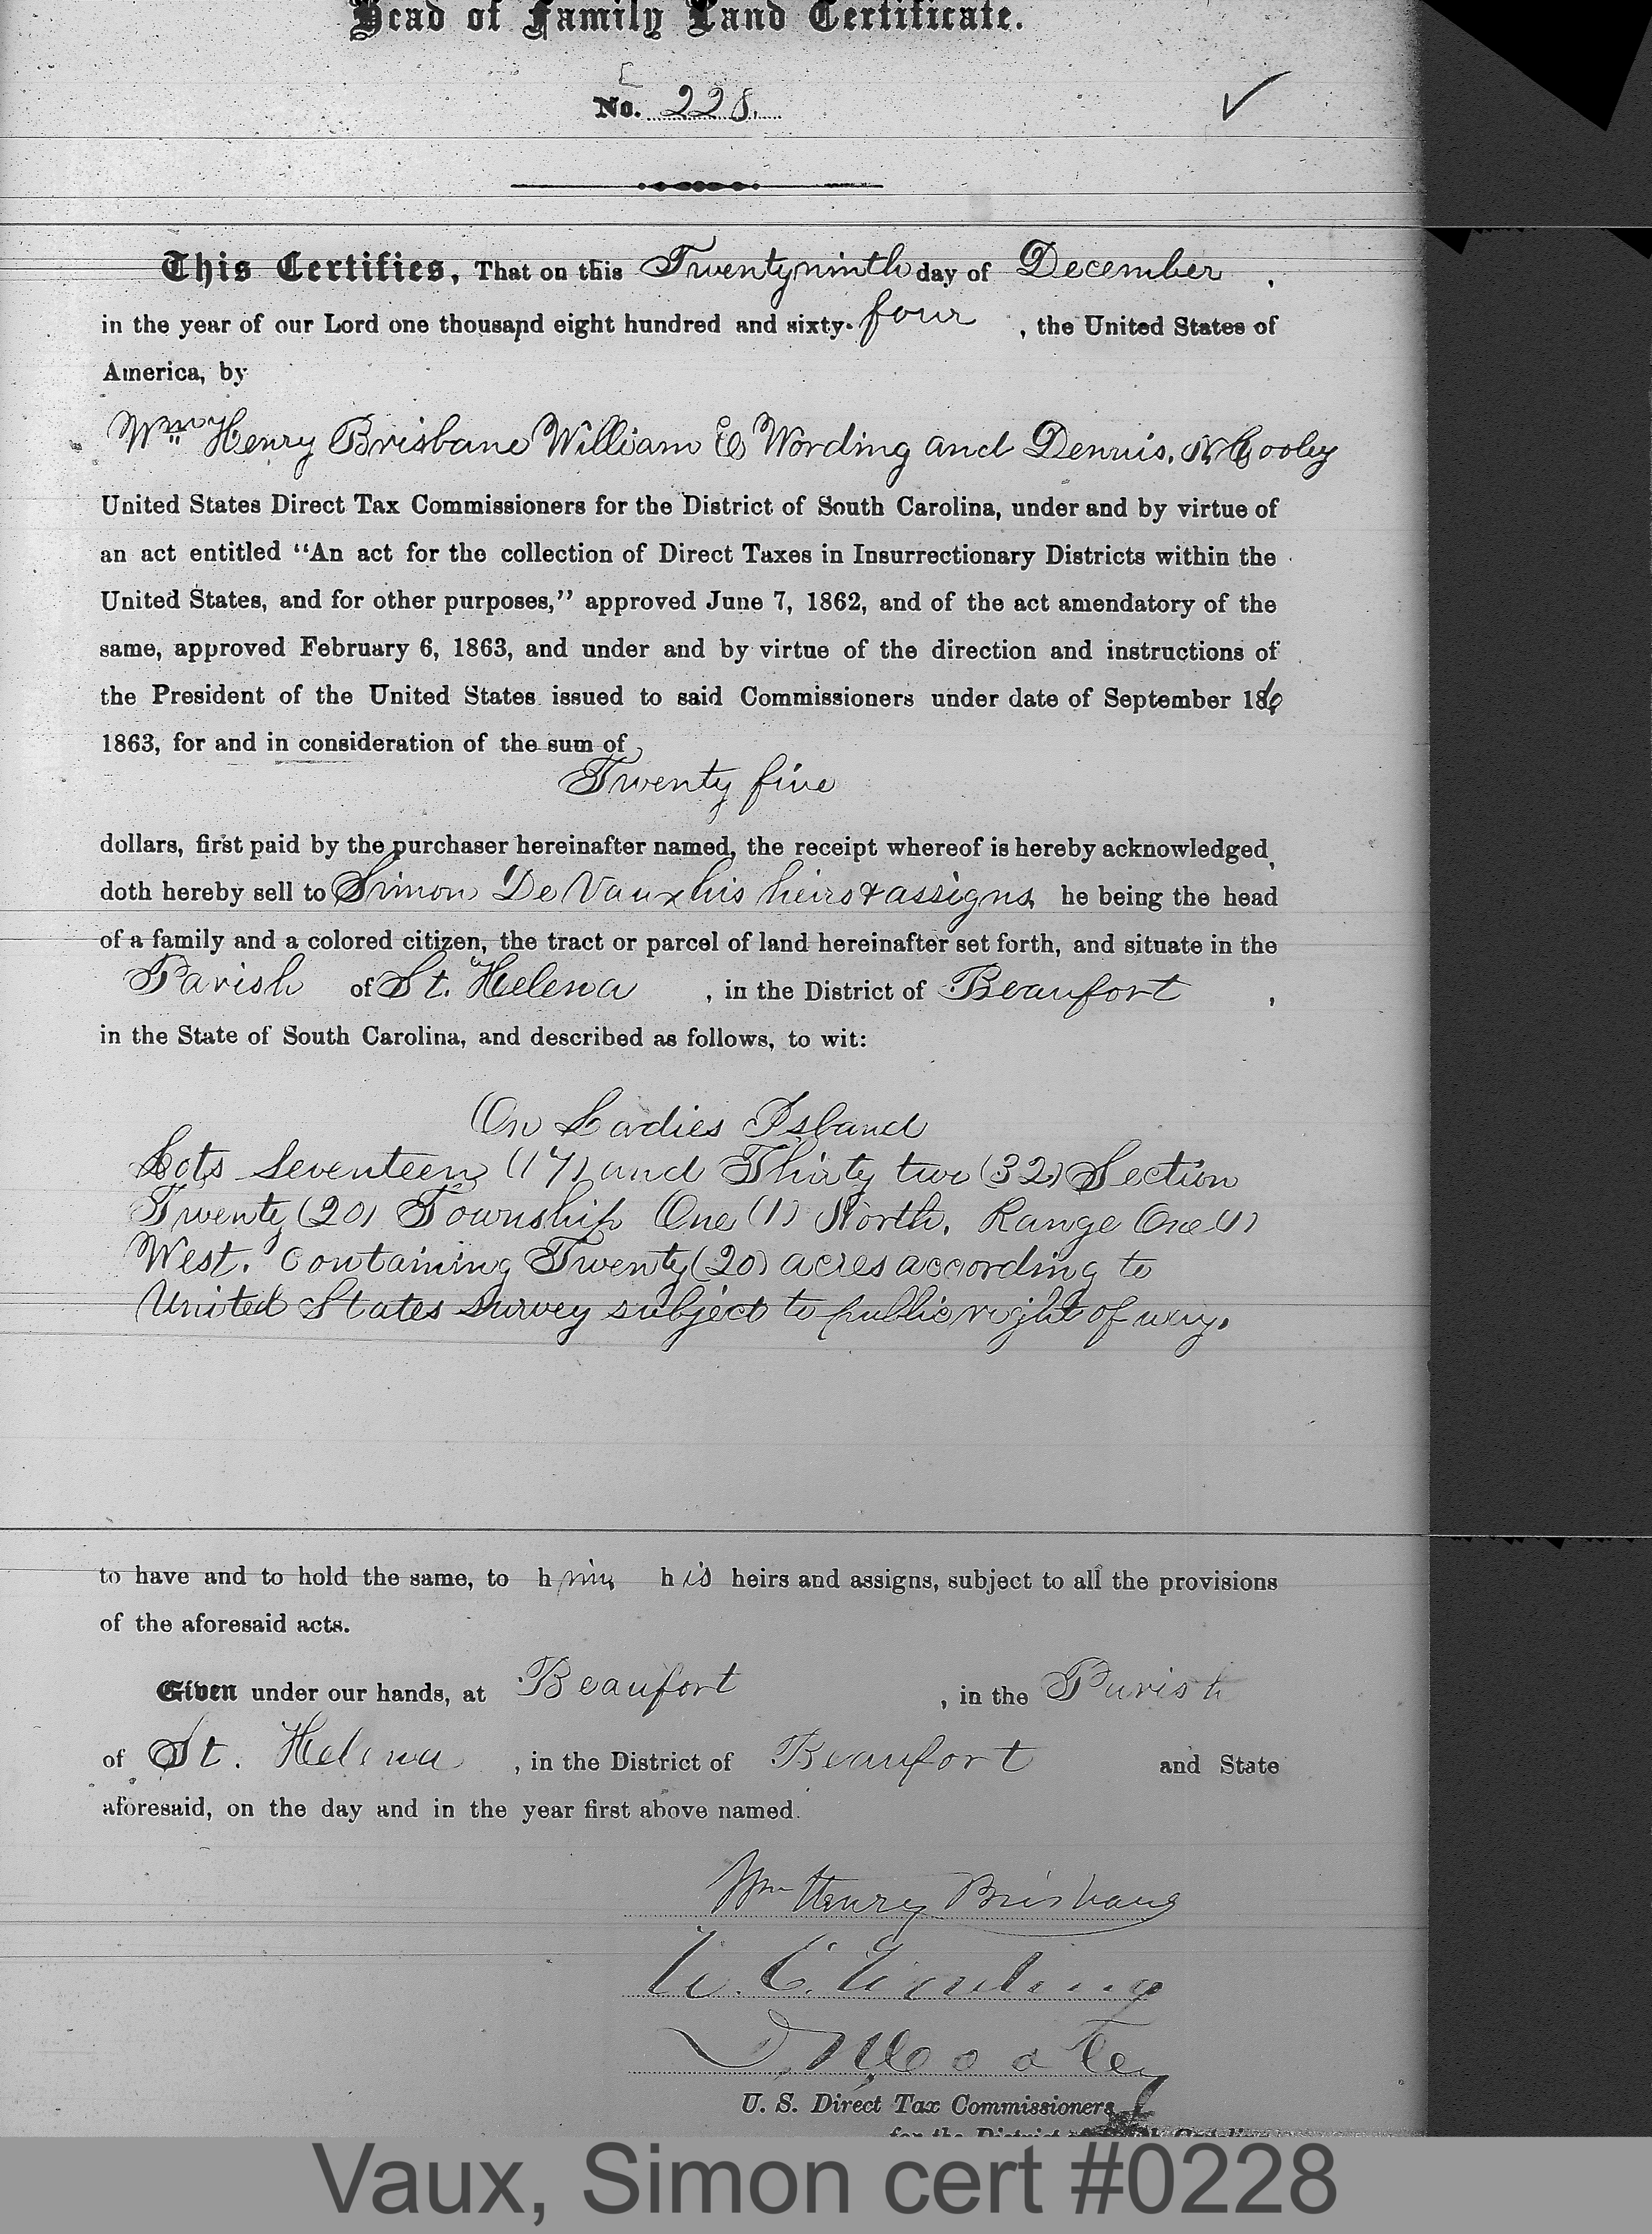 Head of Family Land Certificate.
No. 228.
This Certifies, That on this Twentyninth day of December ,
in the year of our Lord one thousand eight hundred and sixty-four , the United States of
America, by
Wm Henry Brisbane William E Wording and Dennis. N. Cooley
United States Direct Tax Commissioners for the District of South Carolina, under and by virtue of
an act entitled “An act for the collection of Direct Taxes in Insurrectionary Districts within the
United States, and for other purposes,” approved June 7, 1862, and of the act amendatory of the
same, approved February 6, 1863, and under and by virtue of the direction and instructions of
the President of the United States issued to said Commissioners under date of September 16,
1863, for and in consideration of the sum of
Twenty five
dollars, first paid by the purchaser hereinafter named, the receipt whereof is hereby acknowledged,
doth hereby sell to Simon De Vaux his heirs & assigns, he being the head
of a family and a colored citizen, the tract or parcel of land hereinafter set forth, and situate in the
Parish of St. Helena , in the District of Beaufort ,
in the State of South Carolina, and described as follows, to wit:
On Ladies Island
Lots Seventeen (17) and Thirty two (32) Section
Twenty (20) Township One (1) North, Range One (1)
West. Containing Twenty (20) acres according to
United States survey subject to public right of way.
to have and to hold the same, to him his heirs and assigns, subject to all the provisions
of the aforesaid acts.
Given under our hands, at Beaufort , in the Parish
of St. Helena , in the District of Beaufort and State
aforesaid, on the day and in the year first above named.
Wm Henry Brisbane
W. E. Wording
D. N. Cooley
U. S. Direct Tax Commissioners
for the District of South Carolina
Vaux, Simon cert #0228